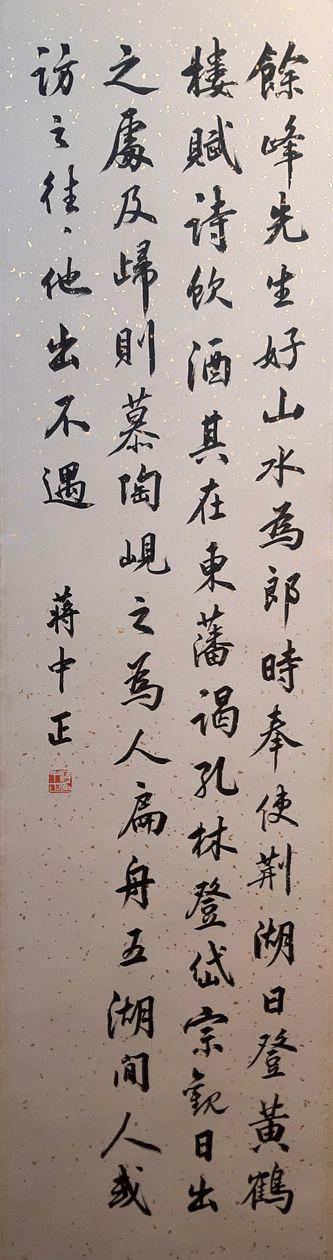 餘峰先生好山水為郎時奉使荆湖日登黃鶴
樓賦詩飲酒其在東藩謁孔林登岱宗觀日出
之處及歸則慕陶峴之為人扁舟五湖間人或
訪之往丶他出不遇
蔣中正